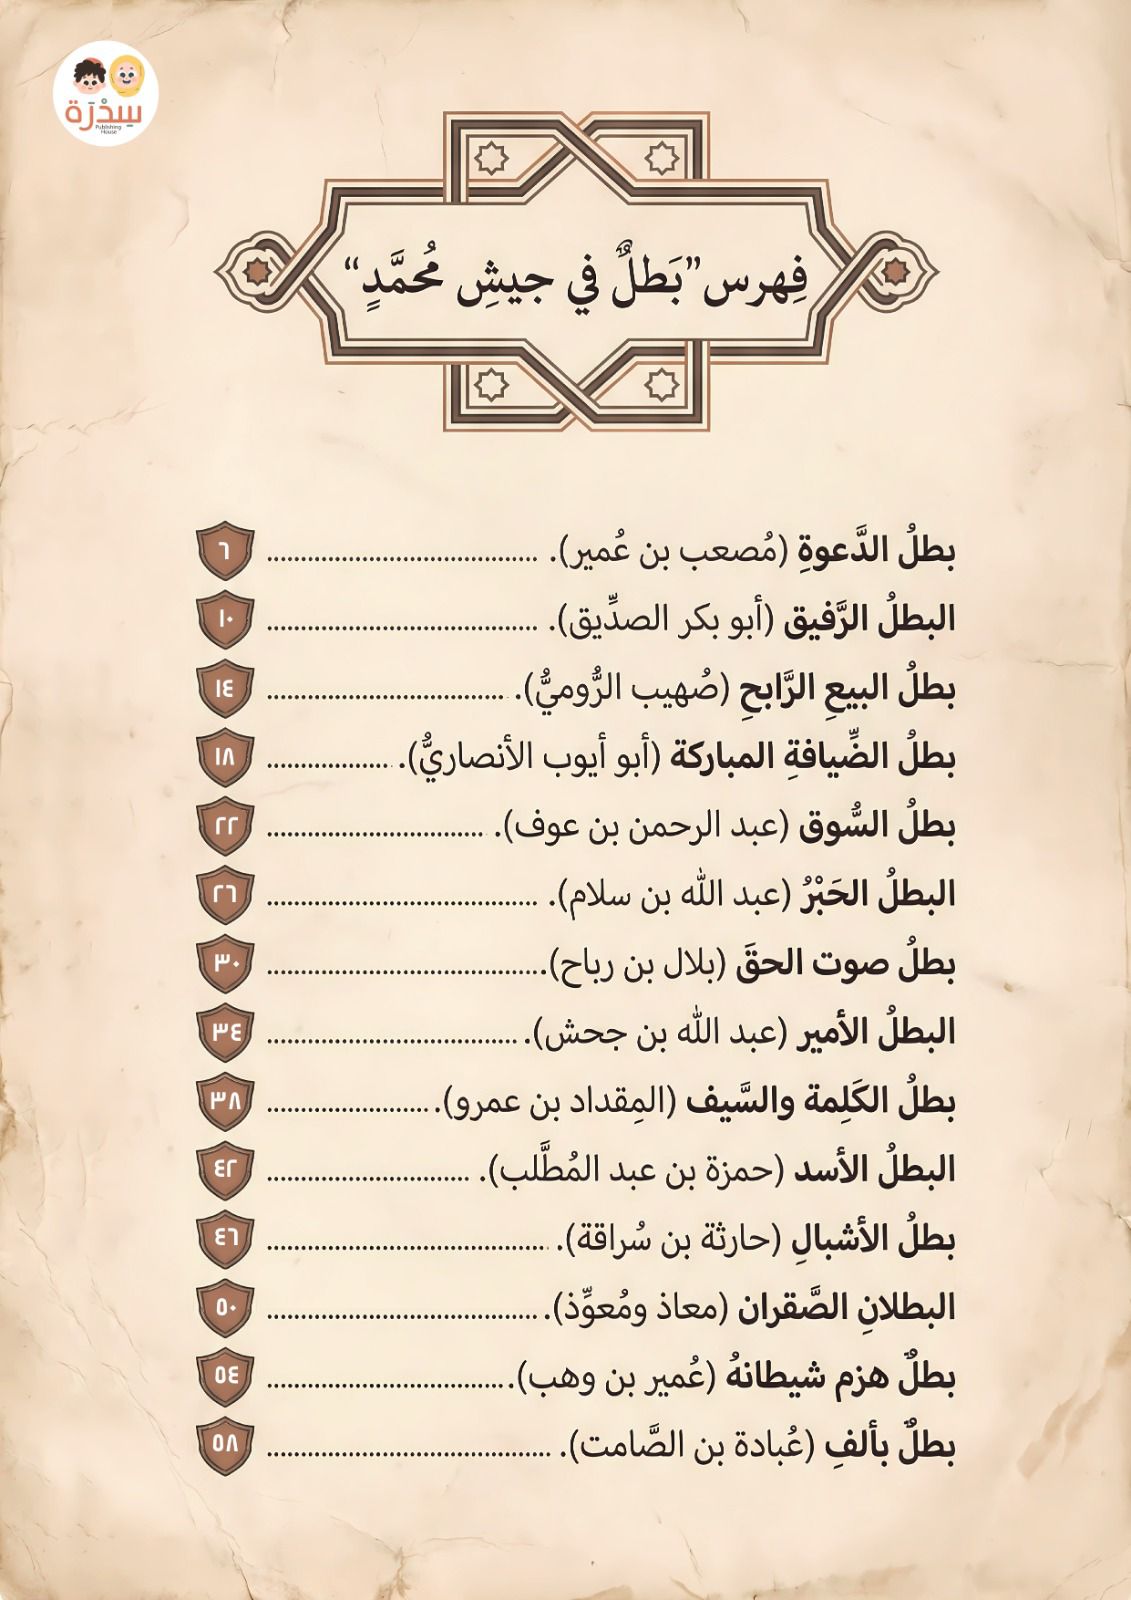 سِدْرَة
Publishing
House
فِهرس "بَطلٌ في جيشِ مُحمَّدٍ"
بطلُ الدَّعوةِ (مُصعب بن عُمير). ........................................ ٦
البطلُ الرَّفيق (أبو بكر الصدِّيق). ........................................ ١٠
بطلُ البيعِ الرَّابحِ (صُهيب الرُّوميُّ). ................................... ١٤
بطلُ الضِّيافةِ المباركة (أبو أيوب الأنصاريُّ). .................. ١٨
بطلُ السُّوق (عبد الرحمن بن عوف). ................................ ٢٢
البطلُ الحَبْرُ (عبد الله بن سلام). ........................................ ٢٦
بطلُ صوت الحقَ (بلال بن رباح). ........................................ ٣٠
البطلُ الأمير (عبد الله بن جحش). ..................................... ٣٤
بطلُ الكَلِمة والسَّيف (المِقداد بن عمرو). ........................ ٣٨
البطلُ الأسد (حمزة بن عبد المُطَّلب). .............................. ٤٢
بطلُ الأشبالِ (حارثة بن سُراقة). ......................................... ٤٦
البطلانِ الصَّقران (معاذ ومُعوِّذ). ........................................ ٥٠
بطلٌ هزم شيطانهُ (عُمير بن وهب). ................................... ٥٤
بطلٌ بألفِ (عُبادة بن الصَّامت). .......................................... ٥٨